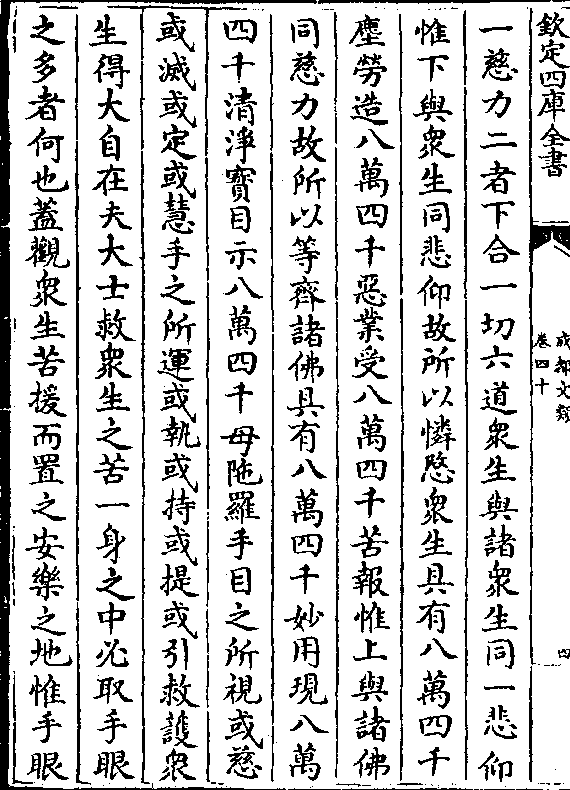 欽定四庫全書
成都文類
卷四十
四
一慈力二者下合一切六道衆生與諸衆生同一悲仰
惟下與衆生同悲仰故所以憐愍衆生具有八萬四千
塵勞造八萬四千惡業受八萬四千苦報惟上與諸佛
同慈力故所以等齊諸佛具有八萬四千妙用現八萬
四千清淨寳目示八萬四千母陁羅手目之所視或慈
或滅或定或慧手之所運或執或持或提或引救護衆
生得大自在夫大士救衆生之苦一身之中必取手眼
之多者何也蓋觀衆生苦援而置之安樂之地惟手眼